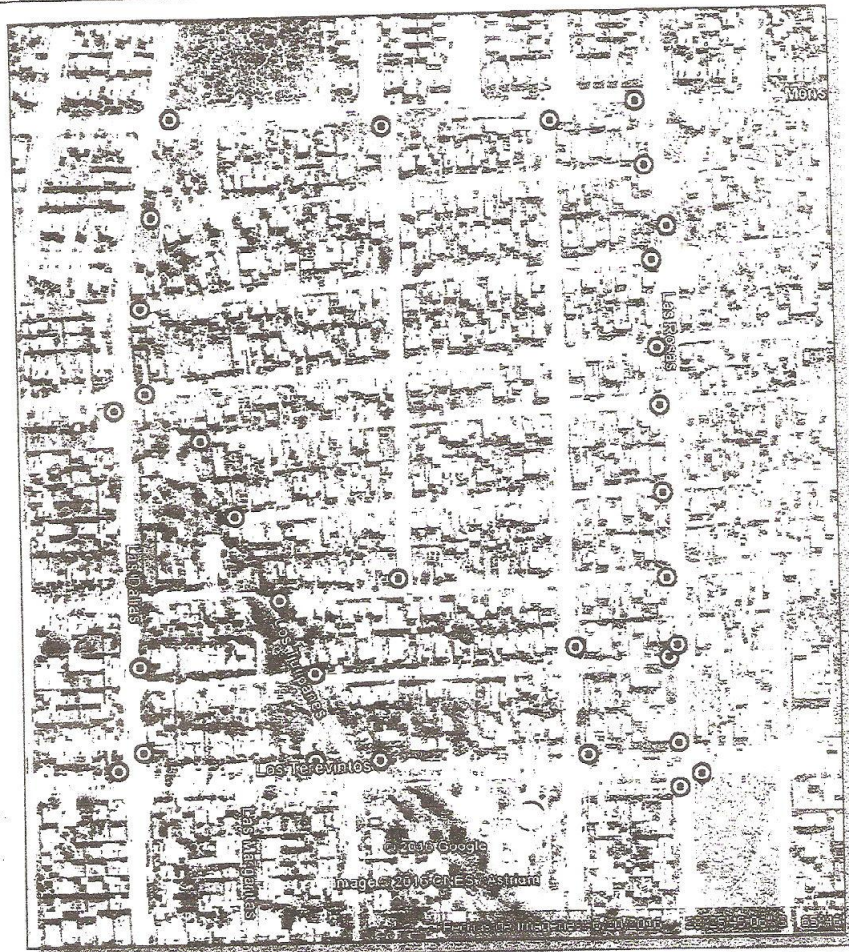 Mons
Las Rosas
Las Dalias
Los Tulipanes
Los Terevintos
Las Magnolias
© 2016 Google
Image © 2016 CNES / Astrium